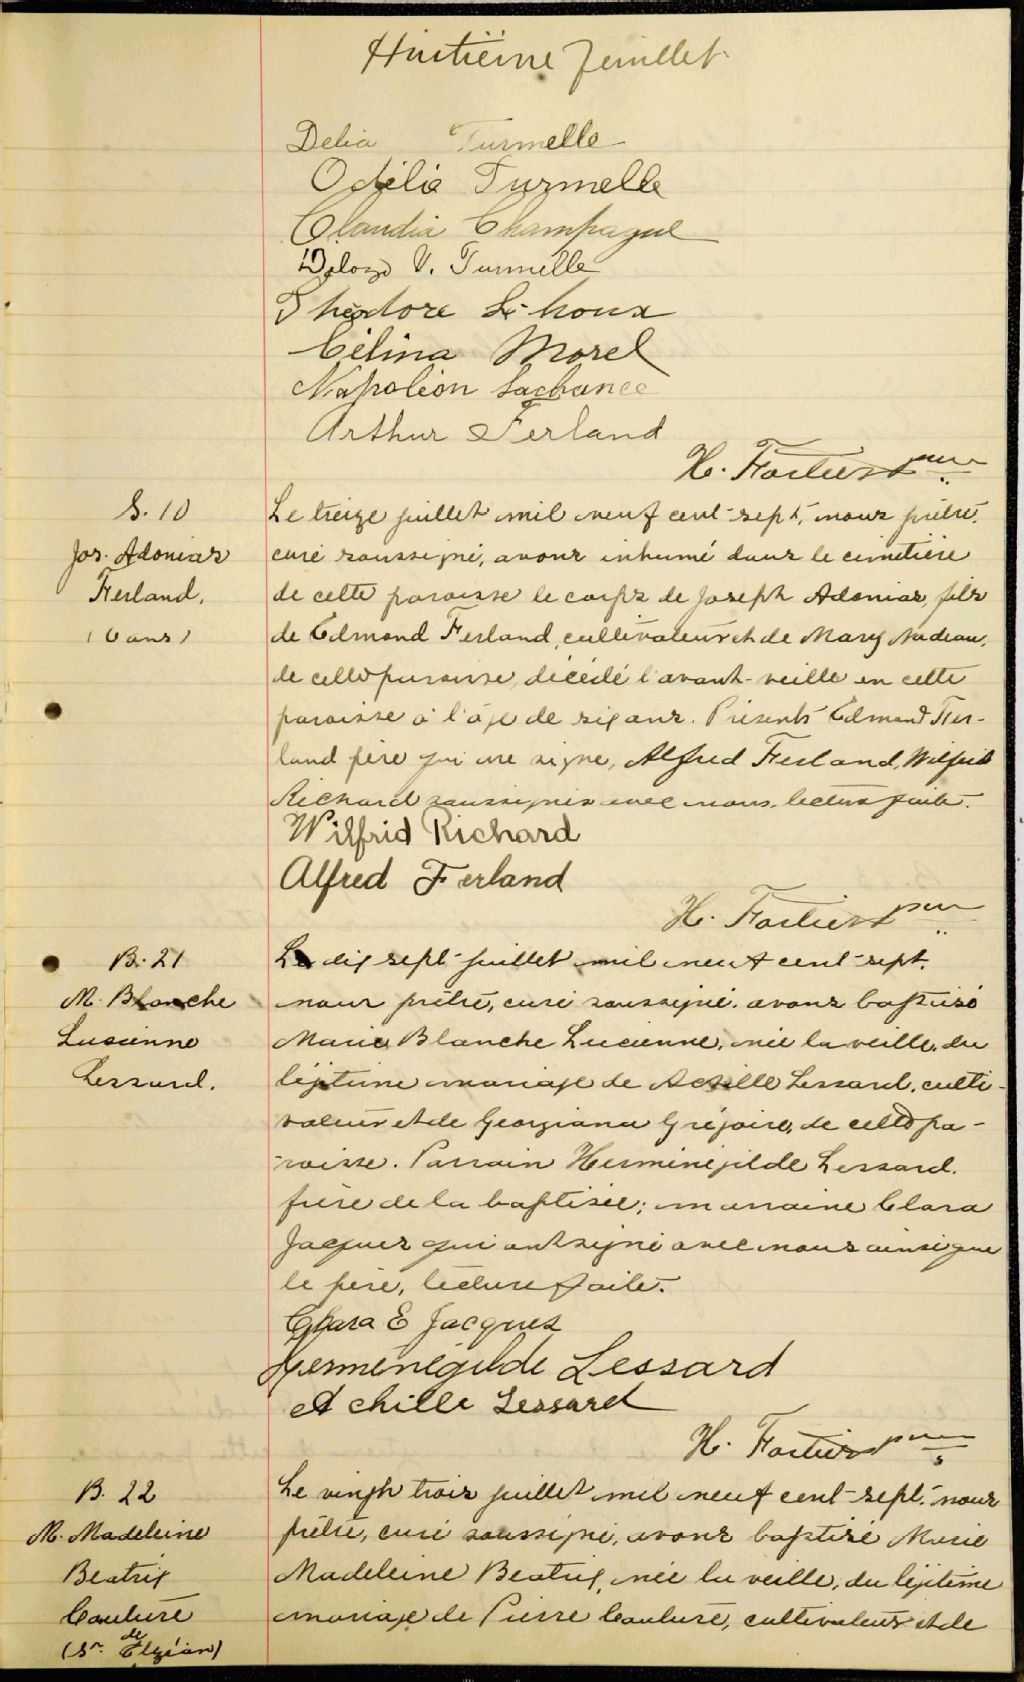 Huitième feuillet
Delia Turmelle
Odélie Turmelle
Claudia Champagne
V. Turmelle
Théodore Lehoux
Célina Morel
Napoléon Lachance
Arthur Ferland
H. Fortier ptre
S. 10
Jos. Adonias
Ferland.
(6 ans)
Le treize juillet mil neuf cent-sept, nous prêtre,
curé soussigné, avons inhumé dans le cimetière
de cette paroisse le corps de Joseph Adonias, fils
de Edmond Ferland, cultivateur et de Mary Nadeau,
de cette paroisse, décédé l'avant-veille en cette
paroisse à l'âge de six ans. Présents Edmond Fer-
land père qui ne signe, Alfred Ferland, Wilfrid
Richard soussignés avec nous, lecture faite.
Wilfrid Richard
Alfred Ferland
H. Fortier ptre
B. 21
M. Blanche
Lucienne
Lessard.
Le dix sept juillet mil neuf cent-sept,
nous prêtre, curé soussigné, avons baptisé
Marie Blanche Lucienne, née la veille, du
légitime mariage de Achille Lessard, culti-
vateur et de Georgiana Grégoire, de cette pa-
roisse. Parrain Herménégilde Lessard,
frère de la baptisée; marraine Clara
Jacques qui ont signé avec nous ainsi que
le père, lecture faite.
Clara E Jacques
Herménégilde Lessard
Achille Lessard
H. Fortier ptre
B. 22
M. Madeleine
Beatrix
Couture
(Sr. de Elzéar)
Le vingt trois juillet mil neuf cent-sept, nous
prêtre, curé soussigné, avons baptisé Marie
Madeleine Beatrix, née la veille, du légitime
mariage de Pierre Couture, cultivateur et de